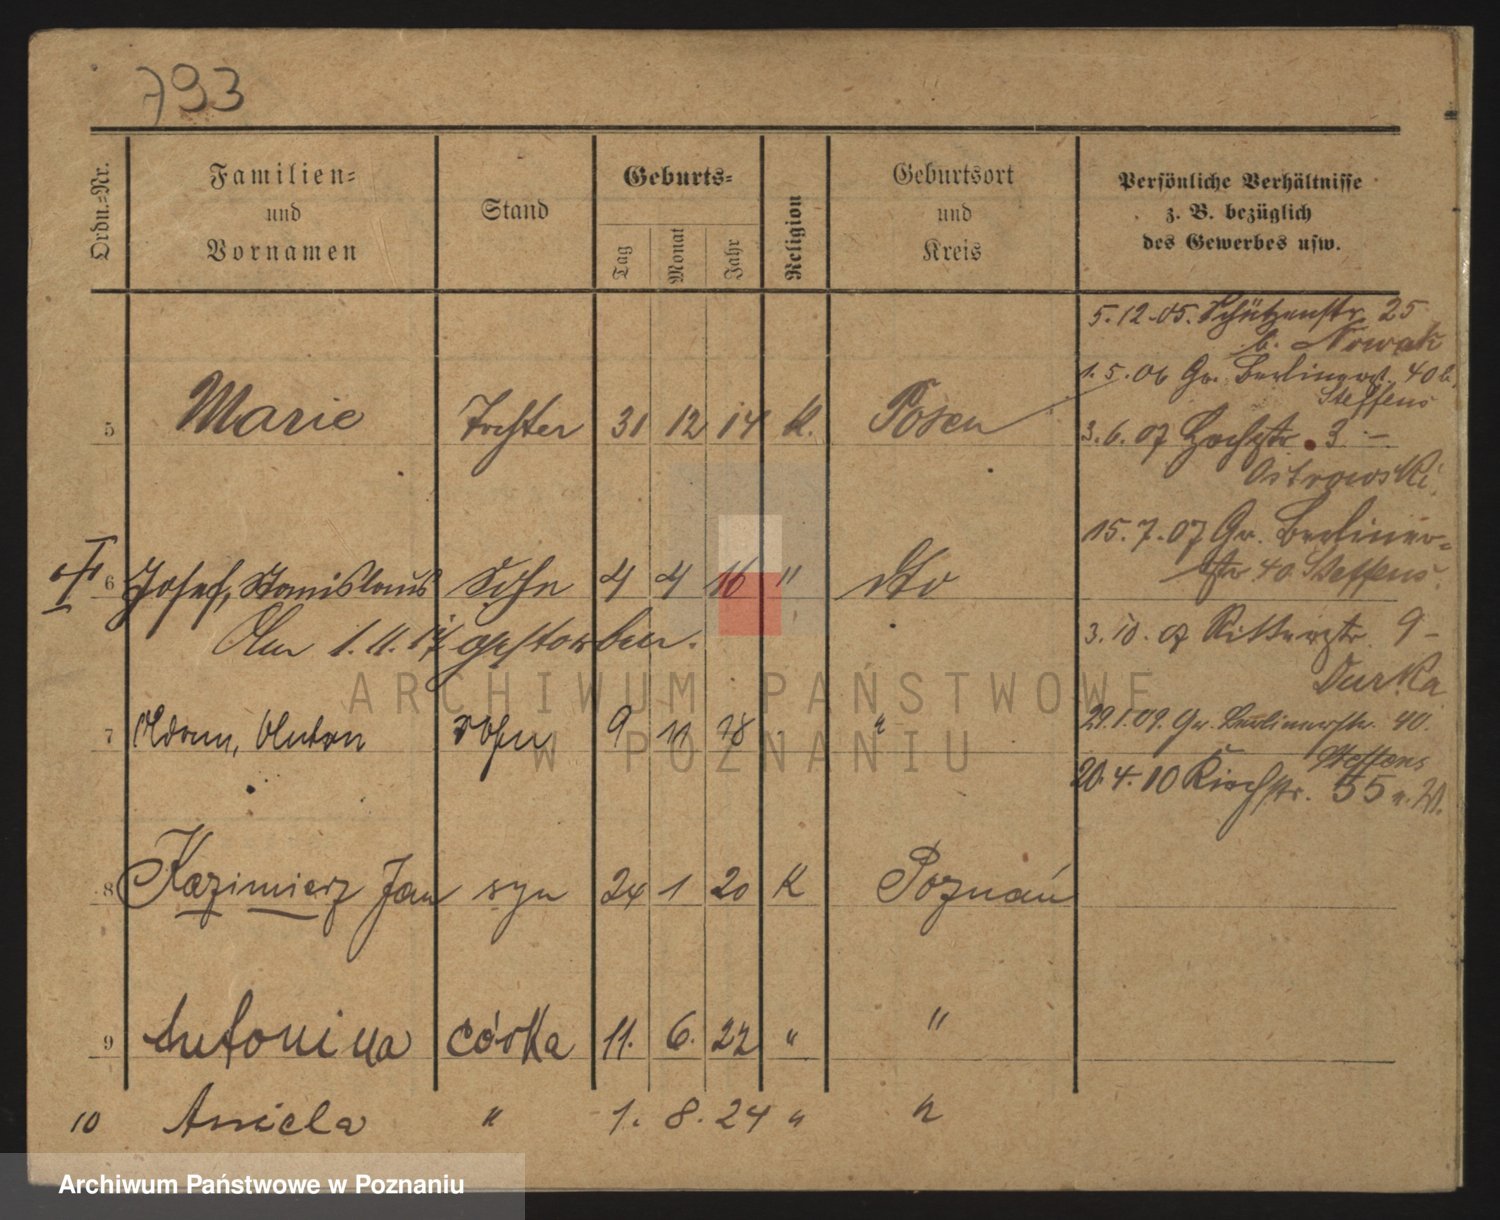 793
Ordn.-Nr.
Familien-
und
Vornamen
Stand
Geburts-
Tag Monat Jahr
Religion
Geburtsort
und
Kreis
Persönliche Verhältnisse
z. B. bezüglich
des Gewerbes usw.
5 Marie Tochter 31 12 14 K. Posen
6 Josef, Stanislaus Sohn 4 4 16 " dto
Am 1.11.17 gestorben.
7 Adam, Anton Sohn 9 11 18 "
8 Kazimierz Jan syn 24 1 20 K Poznań
9 Antonina córka 11. 6. 22 " "
10 Aniela " 1. 8. 24 " "
5.12.05. Schützenstr. 25
b. Nowak
1.5.06 Gr. Berlinerst. 40 b.
Steffens
3.6.07 Hochstr. 3 –
Ostrowski
15.7.07 Gr. Berliner-
str 40 Steffens
3.10.07 Ritterstr. 9 –
Durka
29.1.09. Gr. Berlinerstr. 40.
Steffens
20.4.10 Kirchstr. 55
ARCHIWUM PAŃSTWOWE
W POZNANIU
Archiwum Państwowe w Poznaniu